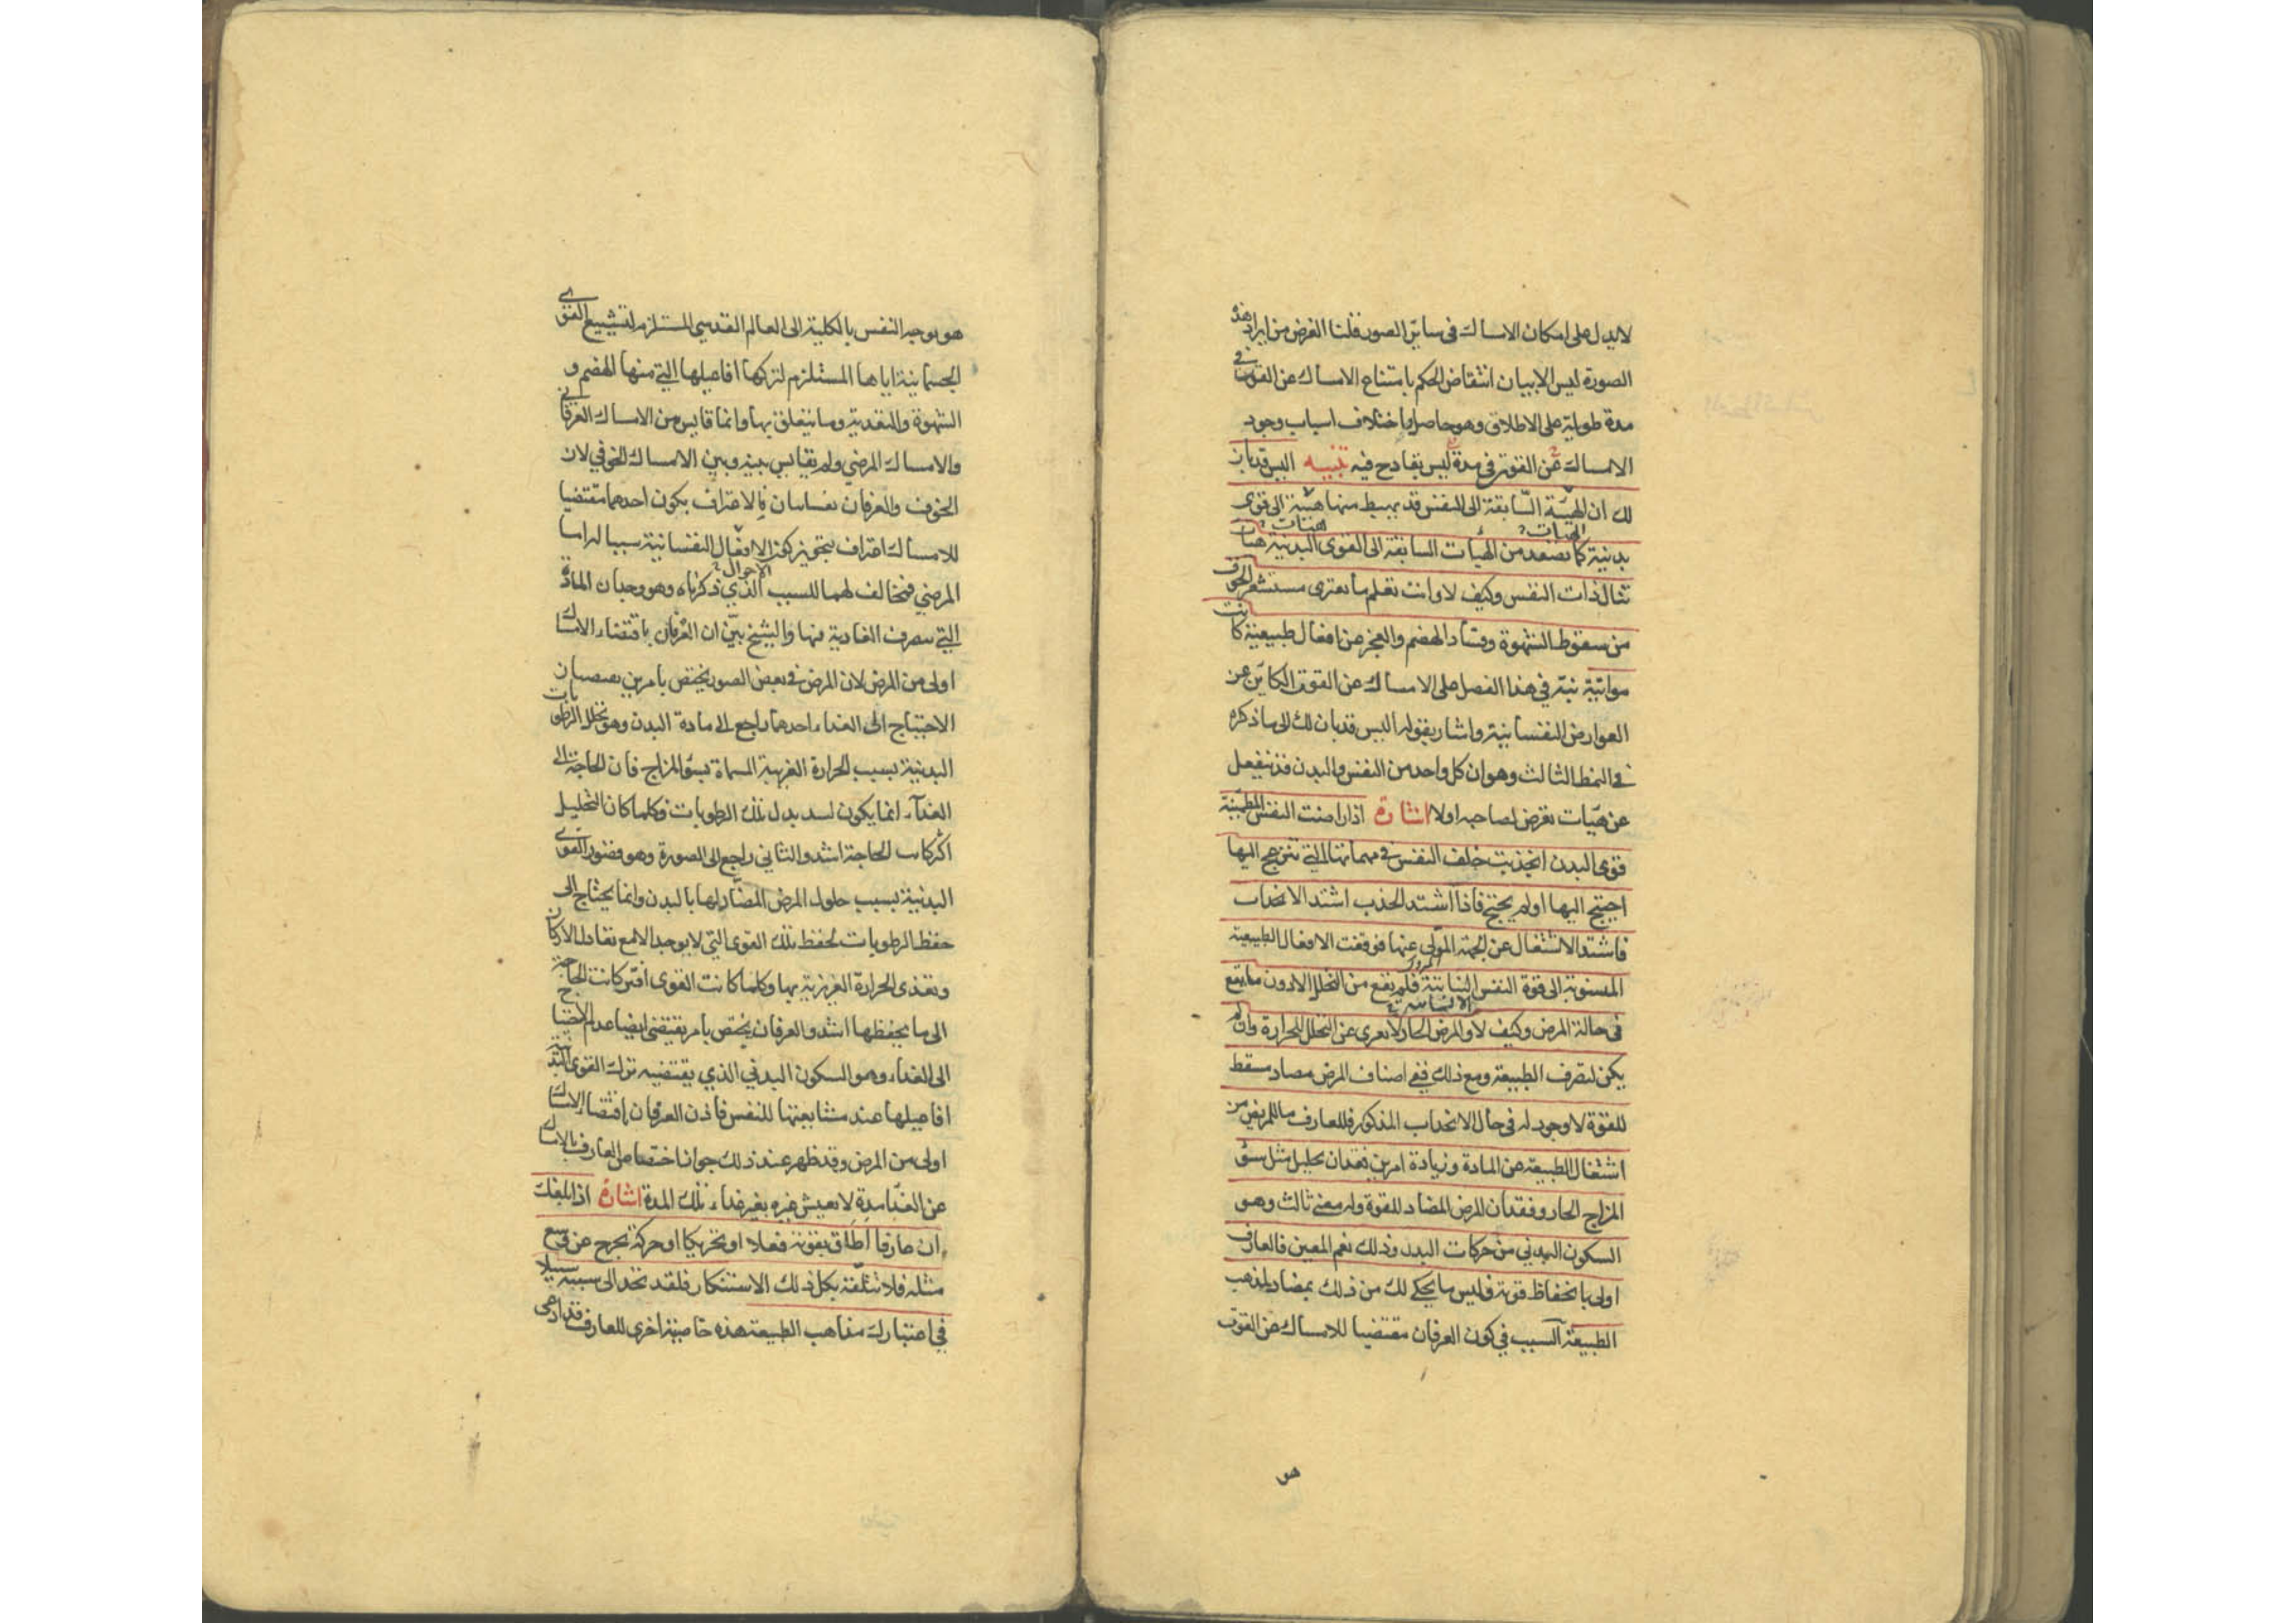 لا يدل على امكان الامساك فى ساير الصور قلنا الغرض من ايراد هذه
الصورة ليس الا بيان انتقاض الحكم بامتناع الامساك عن القوت فى
مدة طويلة على الاطلاق وهو حاصل واختلاف اسباب وجود
الامساك عن القوت فى مدة ليس بقادح فيه تنبيه اليس قد بان
لك ان الهيئة السابقة الى النفس قد يهبط منها هيئة الى قوى
الهيات هيئات
بدنية كما تصعد من الهيات السابقة الى القوى البدنية هيات
تنال ذات النفس وكيف لا وانت تعلم ما يعترى مستشعر الخوف
من سقوط الشهوة وفساد الهضم والعجز عن افعال طبيعية كانت
مواتية نبه فى هذا الفصل على الامساك عن القوت الكاين عن
العوارض النفسانية واشار بقوله اليس قد بان لك الى ما ذكره
فى النمط الثالث وهو ان كل واحد من النفس والبدن قد ينفعل
عن هيات تعرض لصاحبه اولا اشارة اذا راضت النفس المطمئنة
قوى البدن انجذبت خلف النفس فى مهماتها التي تنزعج اليها
احتيج اليها او لم يحتج فاذا اشتد الجذب اشتد الانجذاب
فاشتد الاشتغال عن الجهة المولى عنها فوقفت الافعال الطبيعية
المنسوبة الى قوة النفس النباتية فلم يقع من التحلل الا دون ما يقع
فى حالة المرض وكيف لا والمرض الحار لا يعرى عن التحلل للحرارة وان لم
يكن لتصرف الطبيعة ومع ذلك ففى اصناف المرض مضاد مسقط
للقوة لا وجود له فى حال الانجذاب المذكور فللعارف ما للمريض من
اشتغال الطبيعة عن المادة وزيادة امرين فقدان تحليل مثل سوء
المزاج الحار وفقدان المرض المضاد للقوة وله معين ثالث وهو
السكون البدني من حركات البدن وذلك نعم المعين فالعارف
اولى بانحفاظ قوته فليس ما يحكى لك من ذلك بمضاد لمذهب
الطبيعة السبب في كون العرفان مقتضيا للامساك عن القوت
هو
هو توجه النفس بالكلية الى العالم القدسى المستلزم لتشييع القوى
الجسمانية اياها المستلزم لتركها افاعيلها التي منها الهضم و
الشهوة والتغدية وما يتعلق بها وانما قايس من الامساك العرفاني
والامساك المرضي ولم يقايس بينه وبين الامساك الخوفي لان
الخوف والعرفان نفسانيان فالاعتراف بكون احدهما مقتضيا
للامساك اعتراف بتجويز كون الافعال النفسانية سببا له اما
الاحوال
المرضي فمخالف لهما للسبب الذي ذكرناه وهو وجدان المادة
التي تصرف الغادية فيها والشيخ بيّن ان العرفان باقتضاء الامساك
اولى من المرض لان المرض فى بعض الصور يختص بامرين يقتضيان
الاحتياج الى الغداء احدهما راجع الى مادة البدن وهو تحلل الرطوبات
البدنية بسبب الحرارة الغريبة المسماة بسوء المزاج فان الحاجة الى
الغدآء انما يكون لسد بدل تلك الرطوبات فكلما كان التحليل
اكثر كانت الحاجة اشد والثاني راجع الى الصورة وهو فتور القوى
البدنية بسبب حلول المرض المضاد لها بالبدن وانما يحتاج الى
حفظ الرطوبات لحفظ تلك القوى التي لا يوجد الا مع تعادل الاركان
وتغذى الحرارة الغريزية بها وكلما كانت القوى افتر كانت الحاجة
الى ما يحفظها اشد والعرفان يختص بامر يقتضى ايضا عدم الاحتياج
الى الغداء وهو السكون البدني الذي يقتضيه ترك القوى البدنية
افاعيلها عند مشايعتها للنفس فاذن العرفان باقتضاء الامساك
اولى من المرض وقد ظهر عند ذلك جواز اختصاص العارف بالامساك
عن الغدا مدة لا يعيش غيره بغير غداء تلك المدة اشارة اذا بلغك
ان عارفا اطاق بقوته فعلا او تحريكا او حركة تخرج عن وسع
مثله فلا تتلقه بكل ذلك الاستنكار فلقد تجد الى سببه سبيلا
في اعتبارك مذاهب الطبيعة هذه خاصية اخرى للعارف قد ادعى